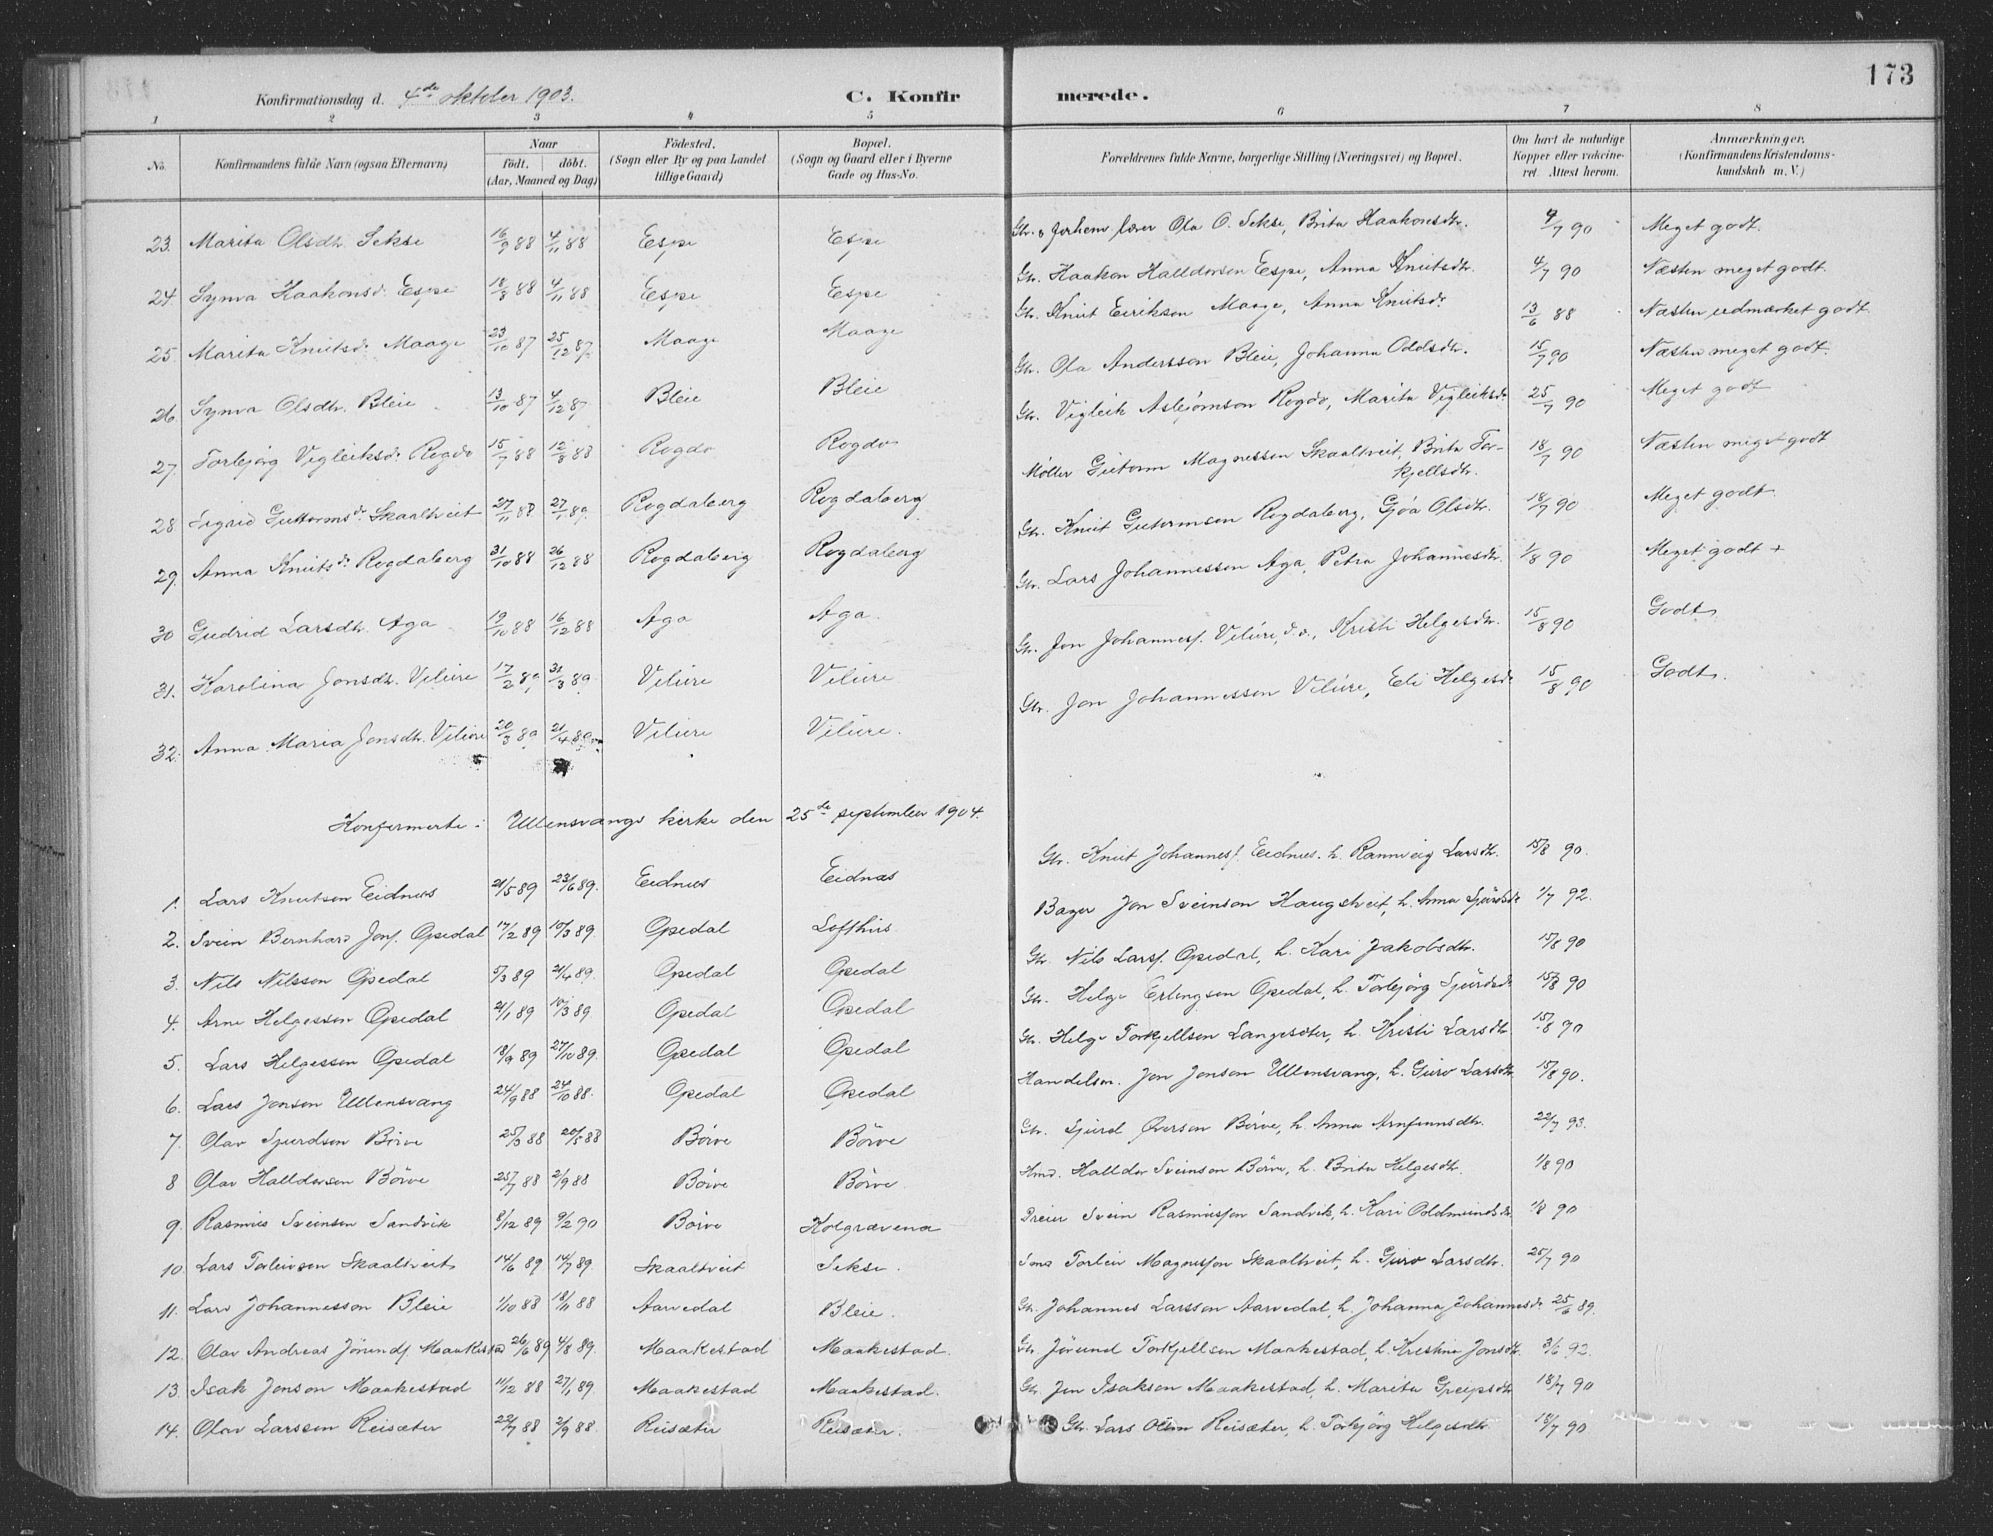 173
Konfirmationsdag d. 4de oktober 1903. C. Konfirmerede.
1 2 3 4 5 6 7 8
No. Konfirmandens fulde Navn (ogsaa Efternavn) Naar født. døbt. (Aar, Maaned og Dag) Fødested. (Sogn eller By og paa Landet tillige Gaard) Bopæl. (Sogn og Gaard eller i Byerne Gade og Hus-No. Forældrenes fulde Navne, borgerlige Stilling (Næringsvei) og Bopæl. Om havt de naturlige Kopper eller vakcineret. Attest herom. Anmærkninger. (Konfirmandens Kristendomskundskab m. V.)
23. Marita Olsdtr. Sekse 16/9 88 4/11 88 Espe Espe Gbr. Ola O. Sekse, Brita Haakonsdtr. 4/7 90 Meget godt.
24. Synva Haakonsd. Espe 18/8 88 4/11 88 Espe Espe Gbr. Haakon Halldorsen Espe, Anna Knutsdtr. 4/7 90 Næsten meget godt.
25. Marita Knutsdr. Maage 23/10 87 25/12 87 Maage Maage Gbr. Knut Eirikson Maage, Anna Knutsdr 13/6 88 Næsten udmærket godt.
26. Synva Olsdtr. Bleie 13/10 87 4/12 87 Bleie Bleie Gbr. Ola Andersson Bleie, Johanna Oddsdtr. 15/7 90 Næsten meget godt.
27. Torbjørg Vigleiksdr. Rogdo 15/7 88 12/8 88 Rogdo Rogdo Gbr. Vigleik Asbjørnson Rogdo, Marita Vigleiksdr 25/7 90 Meget godt
28. Sigrid Guttormsdr. Skaaltveit 27/11 88 27/1 89 Rogdaberg Rogdaberg Møller Gutorm Magnesson Skaaltveit, Brita Torkjellsdtr. 18/7 90 Næsten meget godt
29. Anna Knutsdr. Rogdaberg 31/10 88 26/12 88 Rogdaberg Rogdaberg Gbr. Knut Gutormson Rogdaberg, Gjøa Olsdtr. 18/7 90 Meget godt.
30 Gudrid Larsdtr. Aga 19/10 88 16/12 88 Aga Aga. Gbr. Lars Johannesson Aga, Petra Johannesdtr. 1/8 90 Meget godt +
31. Karolina Jonsdtr. Velure 17/2 89 31/3 89 Velure Velure Gbr. Jon Johannesf. Velure, d.o., Kristi Helgesdtr. 15/8 90 Godt.
32. Anna Maria Jonsdtr. Velure 20/3 89 21/4 89 Velure Velure. Gbr. Jon Johannesson Velure, Eli Helgesdr 15/8 90 Godt.
Konfermerte i Ullensvangs kirke den 25de september 1904.
1. Lars Knutson Eidnes 21/5 89 23/6 89. Eidnes Eidnes Gbr. Knut Johannesf. Eidnes. h. Rannveig Larsdtr. 15/8 90.
2. Svein Bernhard Jonf. Opedal 17/2 89 10/3 89. Opedal Lofthus Bager Jon Sveinson Haugstveit, h. Anna Sjursdr 1/7 92.
3. Nils Nilsson Opedal 5/3 89 21/4 89. Opedal Opedal Gbr. Nils Larsf. Opedal, h. Kari Jakobsdtr. 15/8 90
4. Arne Helgesson Opedal 21/1 89 10/3 89. Opedal Opedal Gbr. Helge Erlingson Opedal, h. Torbjørg Sjursdr 15/8 90
5. Lars Helgesson Opedal 18/9 89 27/10 89. Opedal Opedal Gbr. Helge Torkjellson Langesæter, h. Kristi Larsdtr. 15/8 90
6. Lars Jonson Ullensvang 24/9 88 24/10 88. Opedal Opedal Handelsm. Jon Jonson Ullensvang, h. Guro Larsdtr. 15/8 90.
7. Olav Sjurdson Børve 25/3 88 20/5 88 Børve Børve Gbr. Sjurd Iverson Børve, h. Anna Arnfinnsdtr. 22/7 93.
8 Olav Halldorson Børve 25/7 88 2/9 88 Børve Børve. Hmd. Halldor Sveinson Børve, h. Brita Helgesdtr. 1/8 90
9. Rasmus Sveinson Sandvik 8/12 89 9/2 90 Børve Kolgrævena Dreier Svein Rasmusson Sandvik, h. Kari Oddmundsdr 1/8 90
10. Lars Torleivson Skaaltveit 14/6 89 14/7 89. Skaaltveit Sekse. Torleiv Magnesson Skaaltveit, h. Guro Larsdtr. 25/7 90
11. Lars Johannesson Bleie 1/10 88 18/11 88 Aarvedal Bleie. Gbr. Johannes Larsson Aarvedal, h. Johanna Johannesdr 25/6 89.
12. Olav Andreas Jørundf. Maakestad 26/6 89 4/8 89. Maakestad Maakestad. Gbr. Jørund Torkjellson Maakestad, h. Kristina Jonsdtr. 3/6 92.
13. Isak Jonson Maakestad 11/12 88 27/1 89. Maakestad Maakestad. Gbr. Jon Isakson Maakestad, h. Marita Greipsdtr 18/7 90
14. Olav Larsson Reisæter 22/7 88 2/9 88. Reisæter Reisæter. Gbr. Lars Olson Reisæter, h. Torbjørg Helgesdtr. 18/7 90